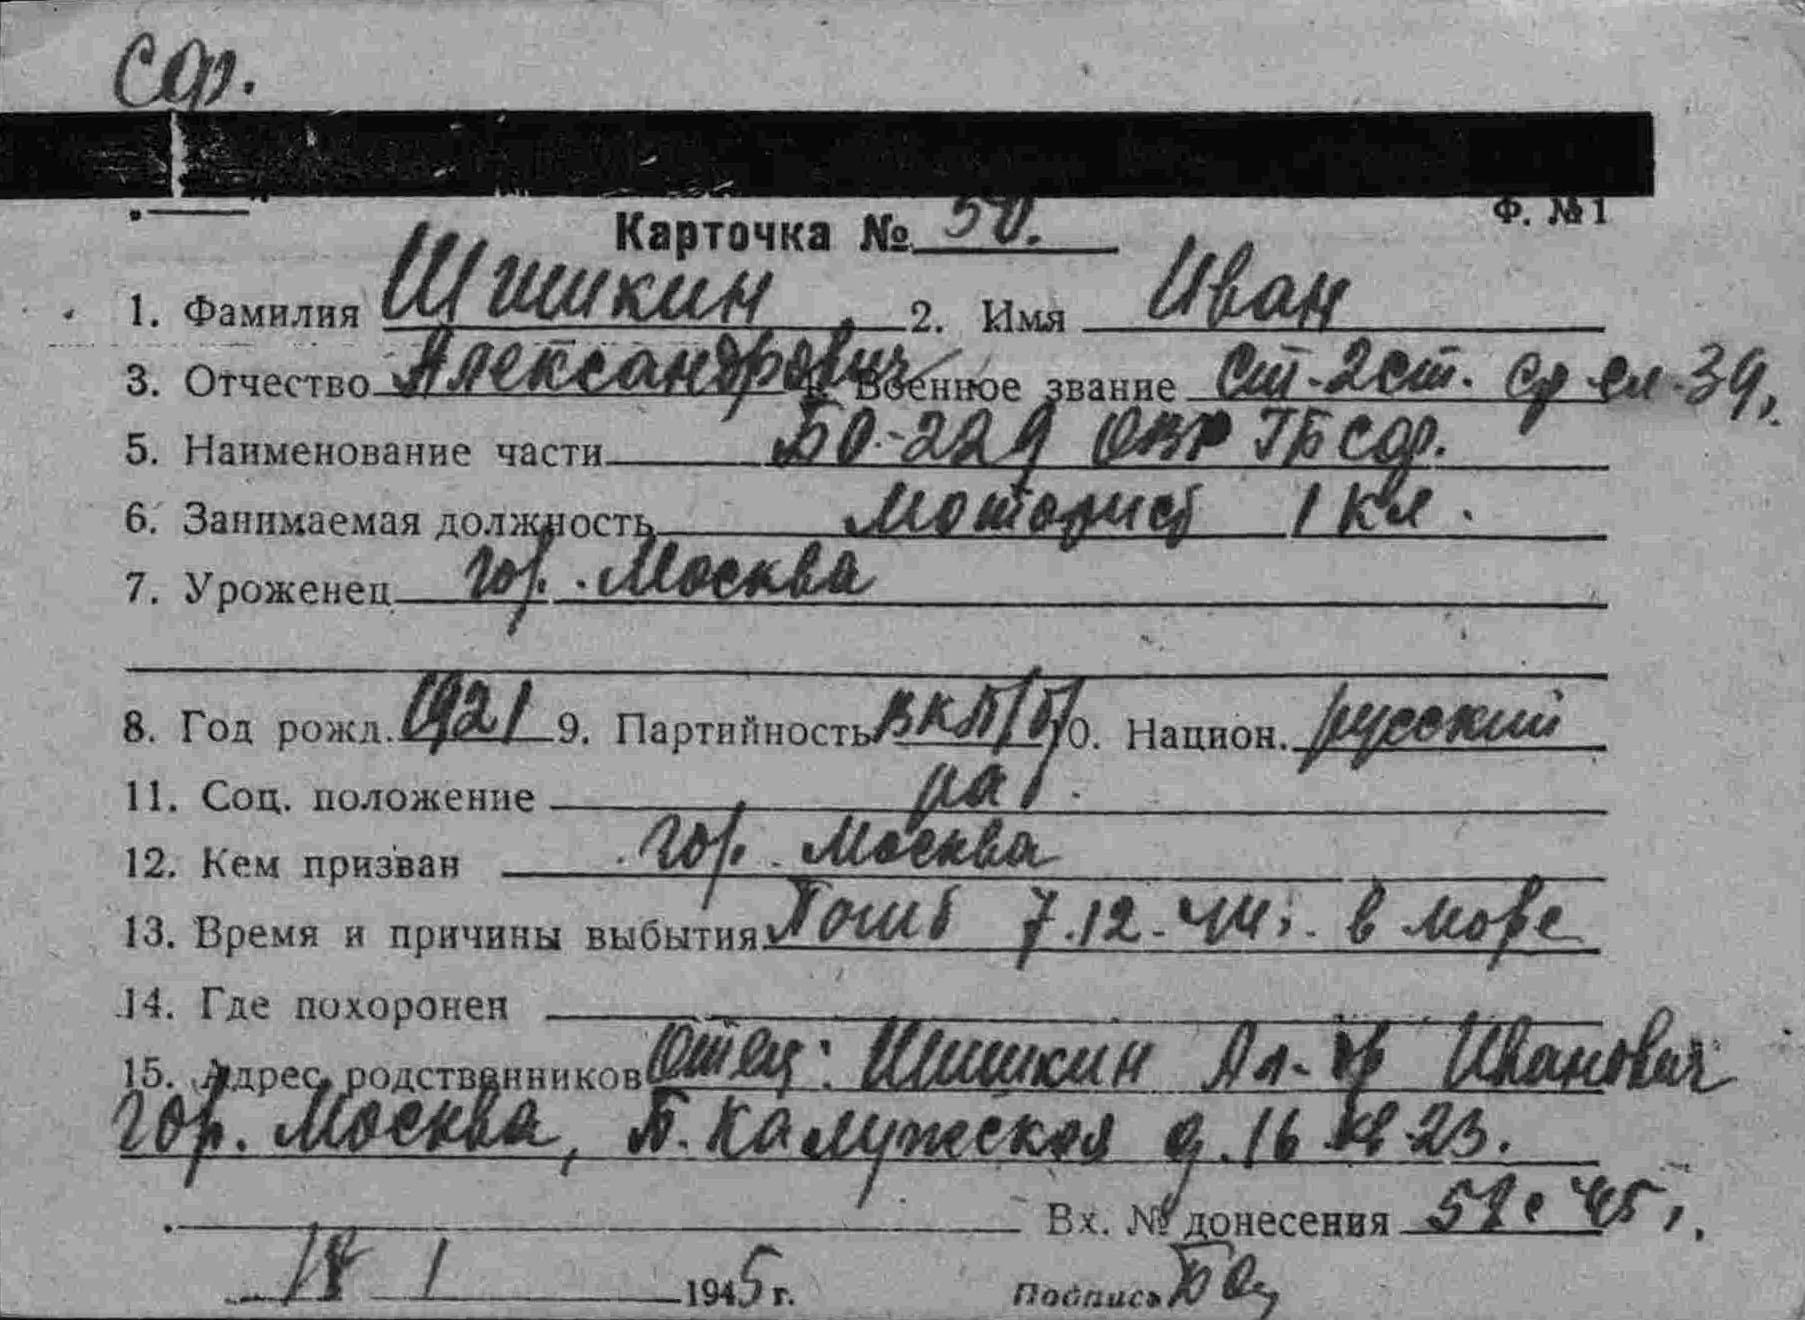 Сф.
Ф. №1
Карточка № 50.
1. Фамилия Шишкин 2. Имя Иван
3. Отчество Александрович 4. Военное звание Ст-2ст. ср сл-39г.
5. Наименование части БО-229 ОВР ГБ Сф.
6. Занимаемая должность моторист 1 кл.
7. Уроженец гор. Москва
8. Год рожд. 1921 9. Партийность ВКП/б/ 10. Национ. русский
11. Соц. положение раб.
12. Кем призван гор. Москва
13. Время и причины выбытия Погиб 7.12-44г. в море
14. Где похоронен
15. Адрес родственников Отец: Шишкин Ал-др Иванович
гор. Москва, Б. Калужская д. 16 кв 23.
Вх. № донесения 45г.
1 1945 г. Подпись